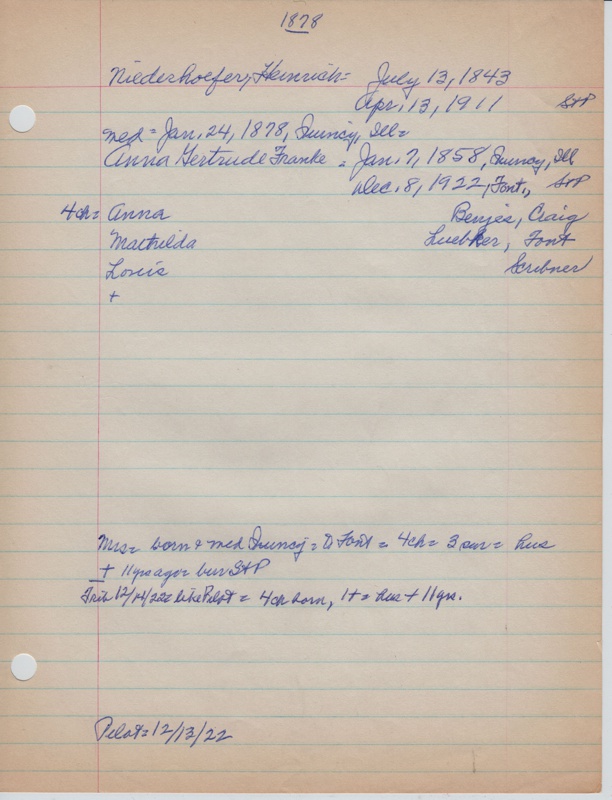 1878
Niederhoefer, Heinrich = July 13, 1843
Apr. 13, 1911 StP
med = Jan. 24, 1878, Quincy, Ill =
Anna Gertrude Franke = Jan. 7, 1858, Quincy, Ill
Dec. 8, 1922, Font., StP
4ch = Anna Benjes, Craig
Mathilda Luebker, Font
Louis Scribner
+
Mrs = born & med Quincy = to Font = 4ch = 3 sur = hus
+ 11 yrs ago = bur StP
Trib 12/14/22 = like Pilot = 4ch born, 1+ = hus + 11 yrs.
Pilot = 12/13/22